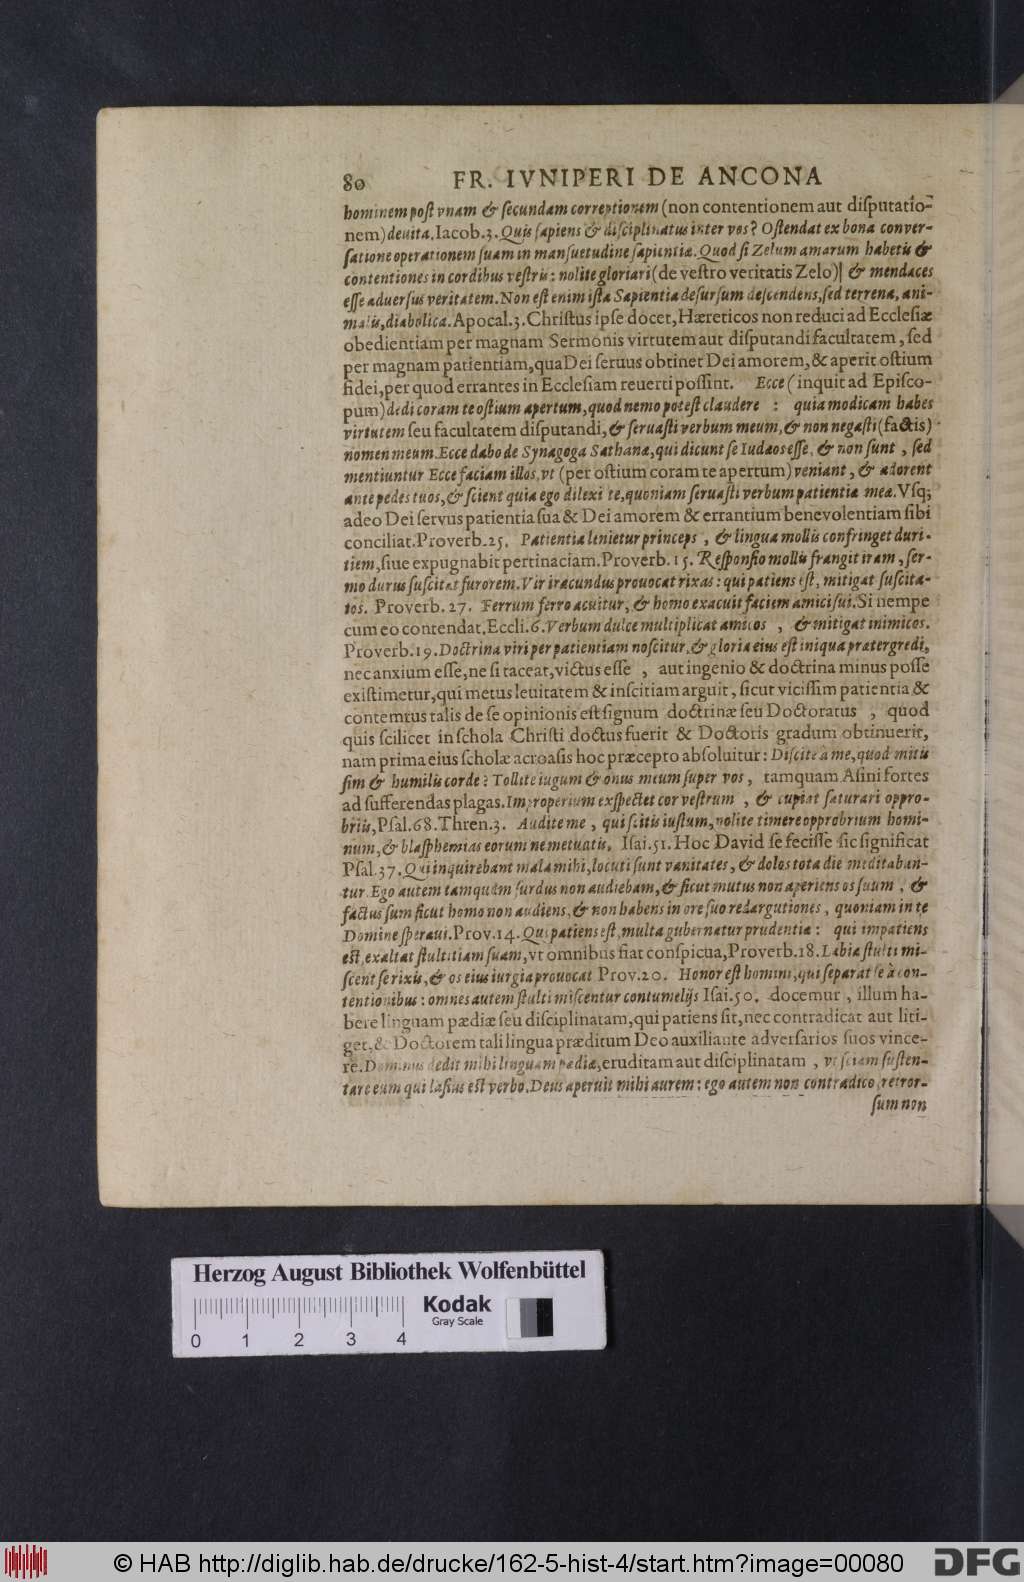 80 FR. IVNIPERI DE ANCONA
hominem post vnam & secundam correptionem (non contentionem aut disputatio-
nem) deuita. Iacob.3. Quis sapiens & disciplinatus inter vos? Ostendat ex bona conver-
satione operationem suam in mansuetudine sapientiæ. Quod si Zelum amarum habetis &
contentiones in cordibus vestris: nolite gloriari (de vestro veritatis Zelo) & mendaces
esse aduersus veritatem. Non est enim ista Sapientia desursum descendens, sed terrena, ani-
malis, diabolica. Apocal.3. Christus ipse docet, Hæreticos non reduci ad Ecclesiæ
obedientiam per magnam Sermonis virtutem aut disputandi facultatem, sed
per magnam patientiam, qua Dei seruus obtinet Dei amorem, & aperit ostium
fidei, per quod errantes in Ecclesiam reuerti possint. Ecce (inquit ad Episco-
pum) dedi coram te ostium apertum, quod nemo potest claudere : quia modicam habes
virtutem seu facultatem disputandi, & seruasti verbum meum, & non negasti (factis)
nomen meum. Ecce dabo de Synagoga Sathanæ, qui dicunt se Iudæos esse, & non sunt, sed
mentiuntur Ecce faciam illos, vt (per ostium coram te apertum) veniant, & adorent
ante pedes tuos, & scient quia ego dilexi te, quoniam seruasti verbum patientiæ meæ. Vsq;
adeo Dei servus patientia sua & Dei amorem & errantium benevolentiam sibi
conciliat. Proverb.25. Patientia lenietur princeps, & lingua mollis confringet duri-
tiem, siue expugnabit pertinaciam. Proverb.15. Responsio mollis frangit iram, ser-
mo durus suscitat furorem. Vir iracundus prouocat rixas: qui patiens est, mitigat suscita-
tos. Proverb.27. Ferrum ferro acuitur, & homo exacuit faciem amici sui. Si nempe
cum eo contendat. Eccli.6. Verbum dulce multiplicat amicos , & mitigat inimicos.
Proverb.19. Doctrina viri per patientiam noscitur, & gloria eius est iniqua prætergredi,
nec anxium esse, ne si taceat, victus esse , aut ingenio & doctrina minus posse
existimetur, qui metus leuitatem & inscitiam arguit, sicut vicissim patientia &
contemtus talis de se opinionis est signum doctrinæ seu Doctoratus , quod
quis scilicet in schola Christi doctus fuerit & Doctoris gradum obtinuerit,
nam prima eius scholæ acroasis hoc præcepto absoluitur: Discite à me, quod mitis
sim & humilis corde: Tollite iugum & onus meum super vos, tamquam Asini fortes
ad sufferendas plagas. Improperium exspectet cor vestrum , & cupiat saturari oppro-
briis, Psal.68. Thren.3. Audite me, qui scitis iustum, nolite timere opprobrium homi-
num, & blasphemias eorum ne metuatis. Isai.51. Hoc David se fecisse sic significat
Psal.37. Qui inquirebant mala mihi, locuti sunt vanitates, & dolos tota die meditaban-
tur. Ego autem tamquàm surdus non audiebam, & sicut mutus non aperiens os suum, &
factus sum sicut homo non audiens, & non habens in ore suo redargutiones, quoniam in te
Domine speraui. Prov.14. Qui patiens est, multa gubernatur prudentia: qui impatiens
est, exaltat stultitiam suam, vt omnibus fiat conspicua, Proverb.18. Labia stulti mi-
scent se rixis, & os eius iurgia prouocat Prov.20. Honor est homini, qui separat se à con-
tentionibus: omnes autem stulti miscentur contumelijs Isai.50. docemur, illum ha-
bere linguam pædiæ seu disciplinatam, qui patiens sit, nec contradicat aut liti-
get, & Doctorem tali lingua præditum Deo auxiliante adversarios suos vince-
re. Dominus dedit mihi linguam pædiæ, eruditam aut disciplinatam, vt sciam susten-
tare eum qui lassus est verbo. Deus aperuit mihi aurem: ego autem non contradico, retror-
sum non
Herzog August Bibliothek Wolfenbüttel
0 1 2 3 4
Kodak
Gray Scale
© HAB http://diglib.hab.de/drucke/162-5-hist-4/start.htm?image=00080
DFG